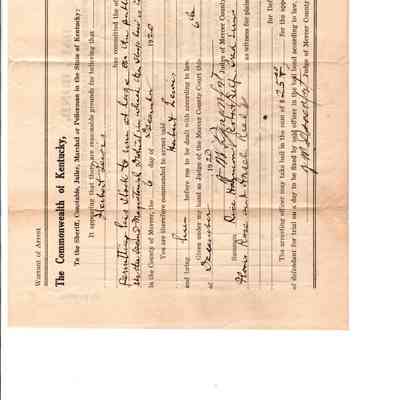 Warrant of Arrest
The Commonwealth of Kentucky,
To the Sheriff, Constable, Jailer, Marshal or Policeman in the State of Kentucky:
It appearing that there are reasonable grounds for believing that
Herbert Lewis
has committed the of
permitting his stock to run at large on the public
in the County of Mercer, the 6 day of December 1920
You are therefore commanded to arrest said
Herbert Lewis
and bring him before me to be dealt with according to law.
Given under my hand as Judge of the Mercer County Court this 6th
of December 1920
Judge of Mercer County
Summon
as witness for plaint
for Def
The arresting officer may take bail in the sum of $ 25.00 for the appe
of defendant for trial on a day to be fixed by said officer in the bail bond according to law.
Judge of Mercer County